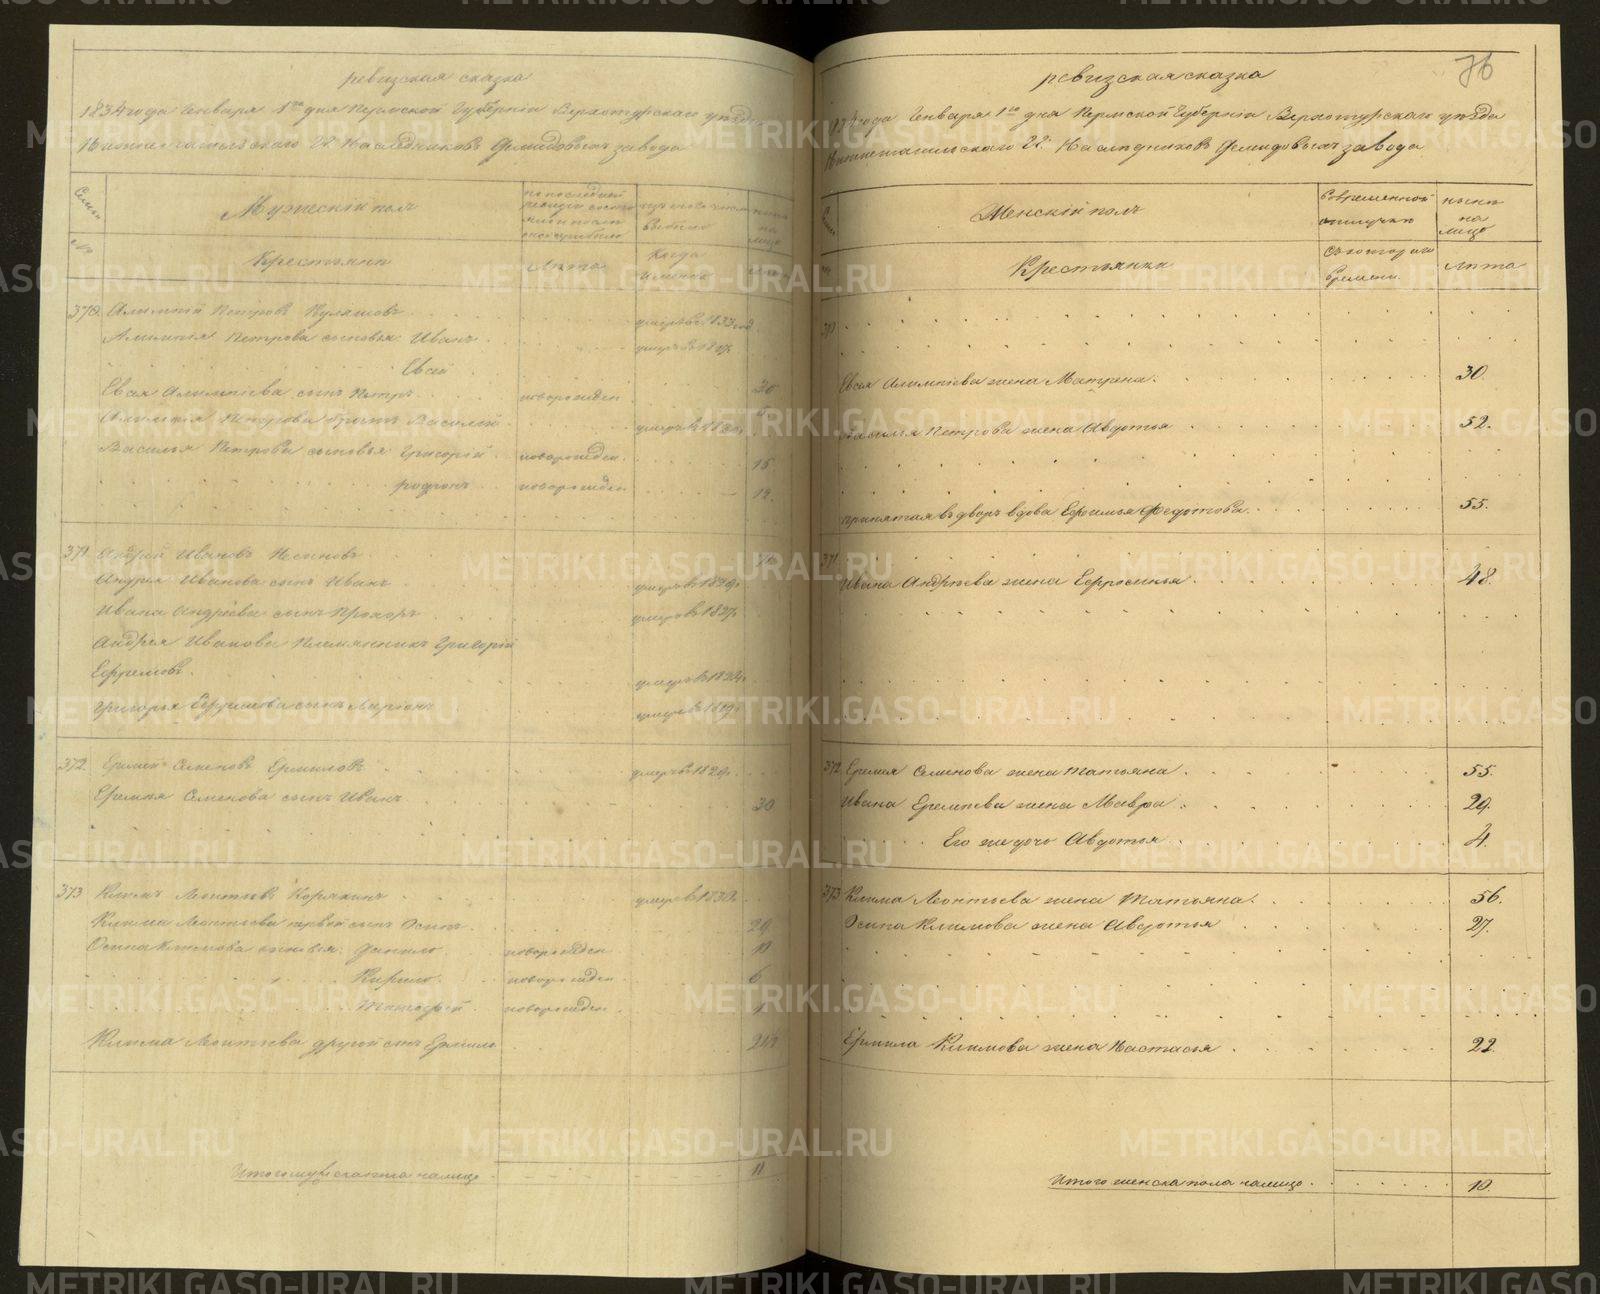 ревизская сказка
1834 года Генваря 1го дня Пермской Губернiи Верхотурскаго уезда
Нижнетагильскаго Гг. Наследниковъ Демидовыхъ завода
Семьи
Мужескiй полъ
по последней ревизiи состояло и после
изъ того числа выбыло
ныне на лицо
№
Крестьяне
Лета
Когда именно
Лета
370. Алимпiй Петровъ Кулашовъ умеръ въ 1833 год.
Алимпiя Петрова сыновья: Иванъ умеръ въ
Евсей 30
Евсея Алимпiева сынъ Петръ новорожден. 5
Алимпiя Петрова братъ Василiй умеръ въ
Василья Петрова сыновья Григорiй новорожден. 15
родiонъ новорожден. 12.
371. Андрей Ивановъ
Андрея Иванова сынъ Иванъ умеръ въ 1829
Ивана Андреева сынъ Прохоръ умеръ въ 1827.
Андрея Иванова племянникъ Григорiй
Ефремовъ умеръ въ
Григорья Ефремова сынъ Ларiонъ умеръ въ
372. Еремей Семеновъ Ермиловъ умеръ въ 1829.
Еремея Семенова сынъ Иванъ 30
373 Климъ Леонтьевъ Корякинъ умеръ въ 1830.
Клима Леонтьева первой сынъ Осипъ 29.
Осипа Климова сыновья: Данило новорожден 11
Кирило новорожден 6
Тимофей новорожден 1
Клима Леонтьева другой сынъ Ермило
Итого мужеска пола налицо 11
76
ревизская сказка
1834 года Генваря 1го дня Пермской Губернiи Верхотурскаго уезда
Нижнетагильскаго Гг. Наследниковъ Демидовыхъ завода
Семьи
Женскiй полъ
Во временной отлучке
ныне на лицо
№
Крестьянки
Съ котораго времени
Лета
370
Евсея Алимпiева жена Матрена. 30.
Василья Петрова жена Авдотья 52.
Принятая въ дворъ вдова Ефимья Федотова. 55.
371.
Ивана Андреева жена Ефросинья 48.
372. Еремея Семенова жена Татьяна. 55.
Ивана Еремеева жена Мавра. 29.
Его же дочь Авдотья 4.
373 Клима Леонтьева жена Татьяна. 56.
Осипа Климова жена Авдотья 27.
Ермила Климова жена Настасья 22.
Итого женска пола налицо 10.
METRIKI.GASO-URAL.RU